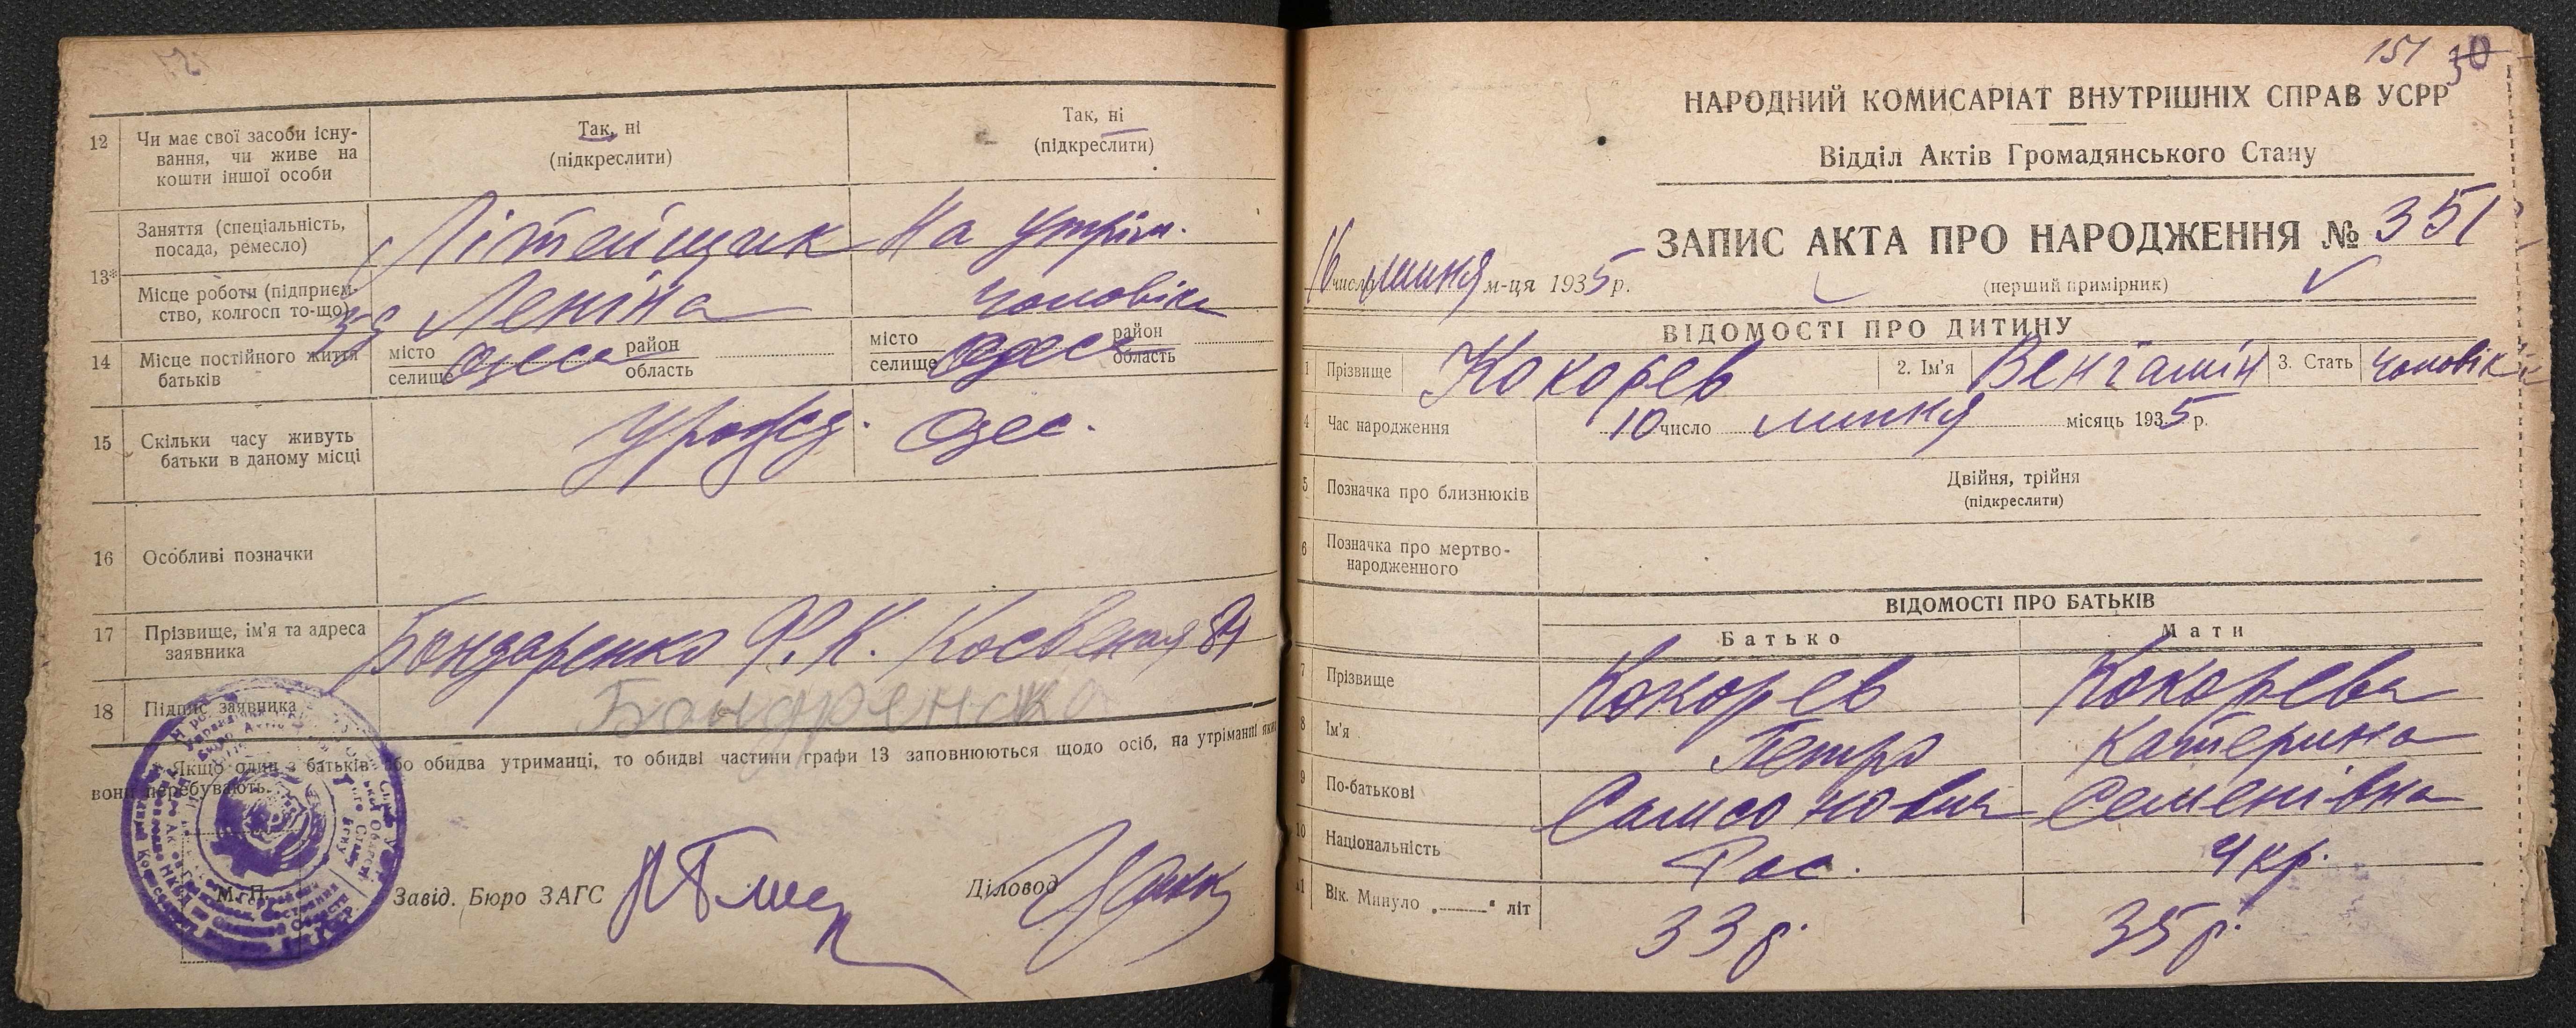 12 Чи має свої засоби існу-
вання, чи живе на
кошти іншої особи
Так, ні
(підкреслити)
Так, ні
(підкреслити)
13*
Заняття (спеціальність,
посада, ремесло)
Літейщик
На утрім.
Місце роботи (підприєм-
ство, колгосп то-що)
Леніна
чоловіка
14 Місце постійного життя
батьків
місто
селище
Одеса
район
область
місто
селище
Одеса
район
область
15 Скільки часу живуть
батьки в даному місці
Урожд. Одес.
16 Особливі позначки
17 Прізвище, ім'я та адреса
заявника
Бондаренко Ф. К. Косвеная 84
18 Підпис заявника
Бондренка
* Якщо один з батьків або обидва утриманці, то обидві частини графи 13 заповнюються щодо осіб, на утриманні яких
вони перебувають.
М. П.
Завід. Бюро ЗАГС
Діловод
151 30
НАРОДНИЙ КОМИСАРІАТ ВНУТРІШНІХ СПРАВ УСРР
Відділ Актів Громадянського Стану
ЗАПИС АКТА ПРО НАРОДЖЕННЯ № 351
16 число липня м-ця 1935 р.
(перший примірник)
ВІДОМОСТІ ПРО ДИТИНУ
1 Прізвище Кокорев 2. Ім'я Веніамін 3. Стать чоловік
4 Час народження 10 число липня місяць 1935 р.
5 Позначка про близнюків
Двійня, трійня
(підкреслити)
6 Позначка про мертво-
народженного
ВІДОМОСТІ ПРО БАТЬКІВ
Батько Мати
7 Прізвище Кокорев Кокорева
8 Ім'я Петро Катерина
9 По-батькові Самсонович Семенівна
10 Національність Рос. Укр.
11 Вік. Минуло „——“ літ 33 р. 35 р.